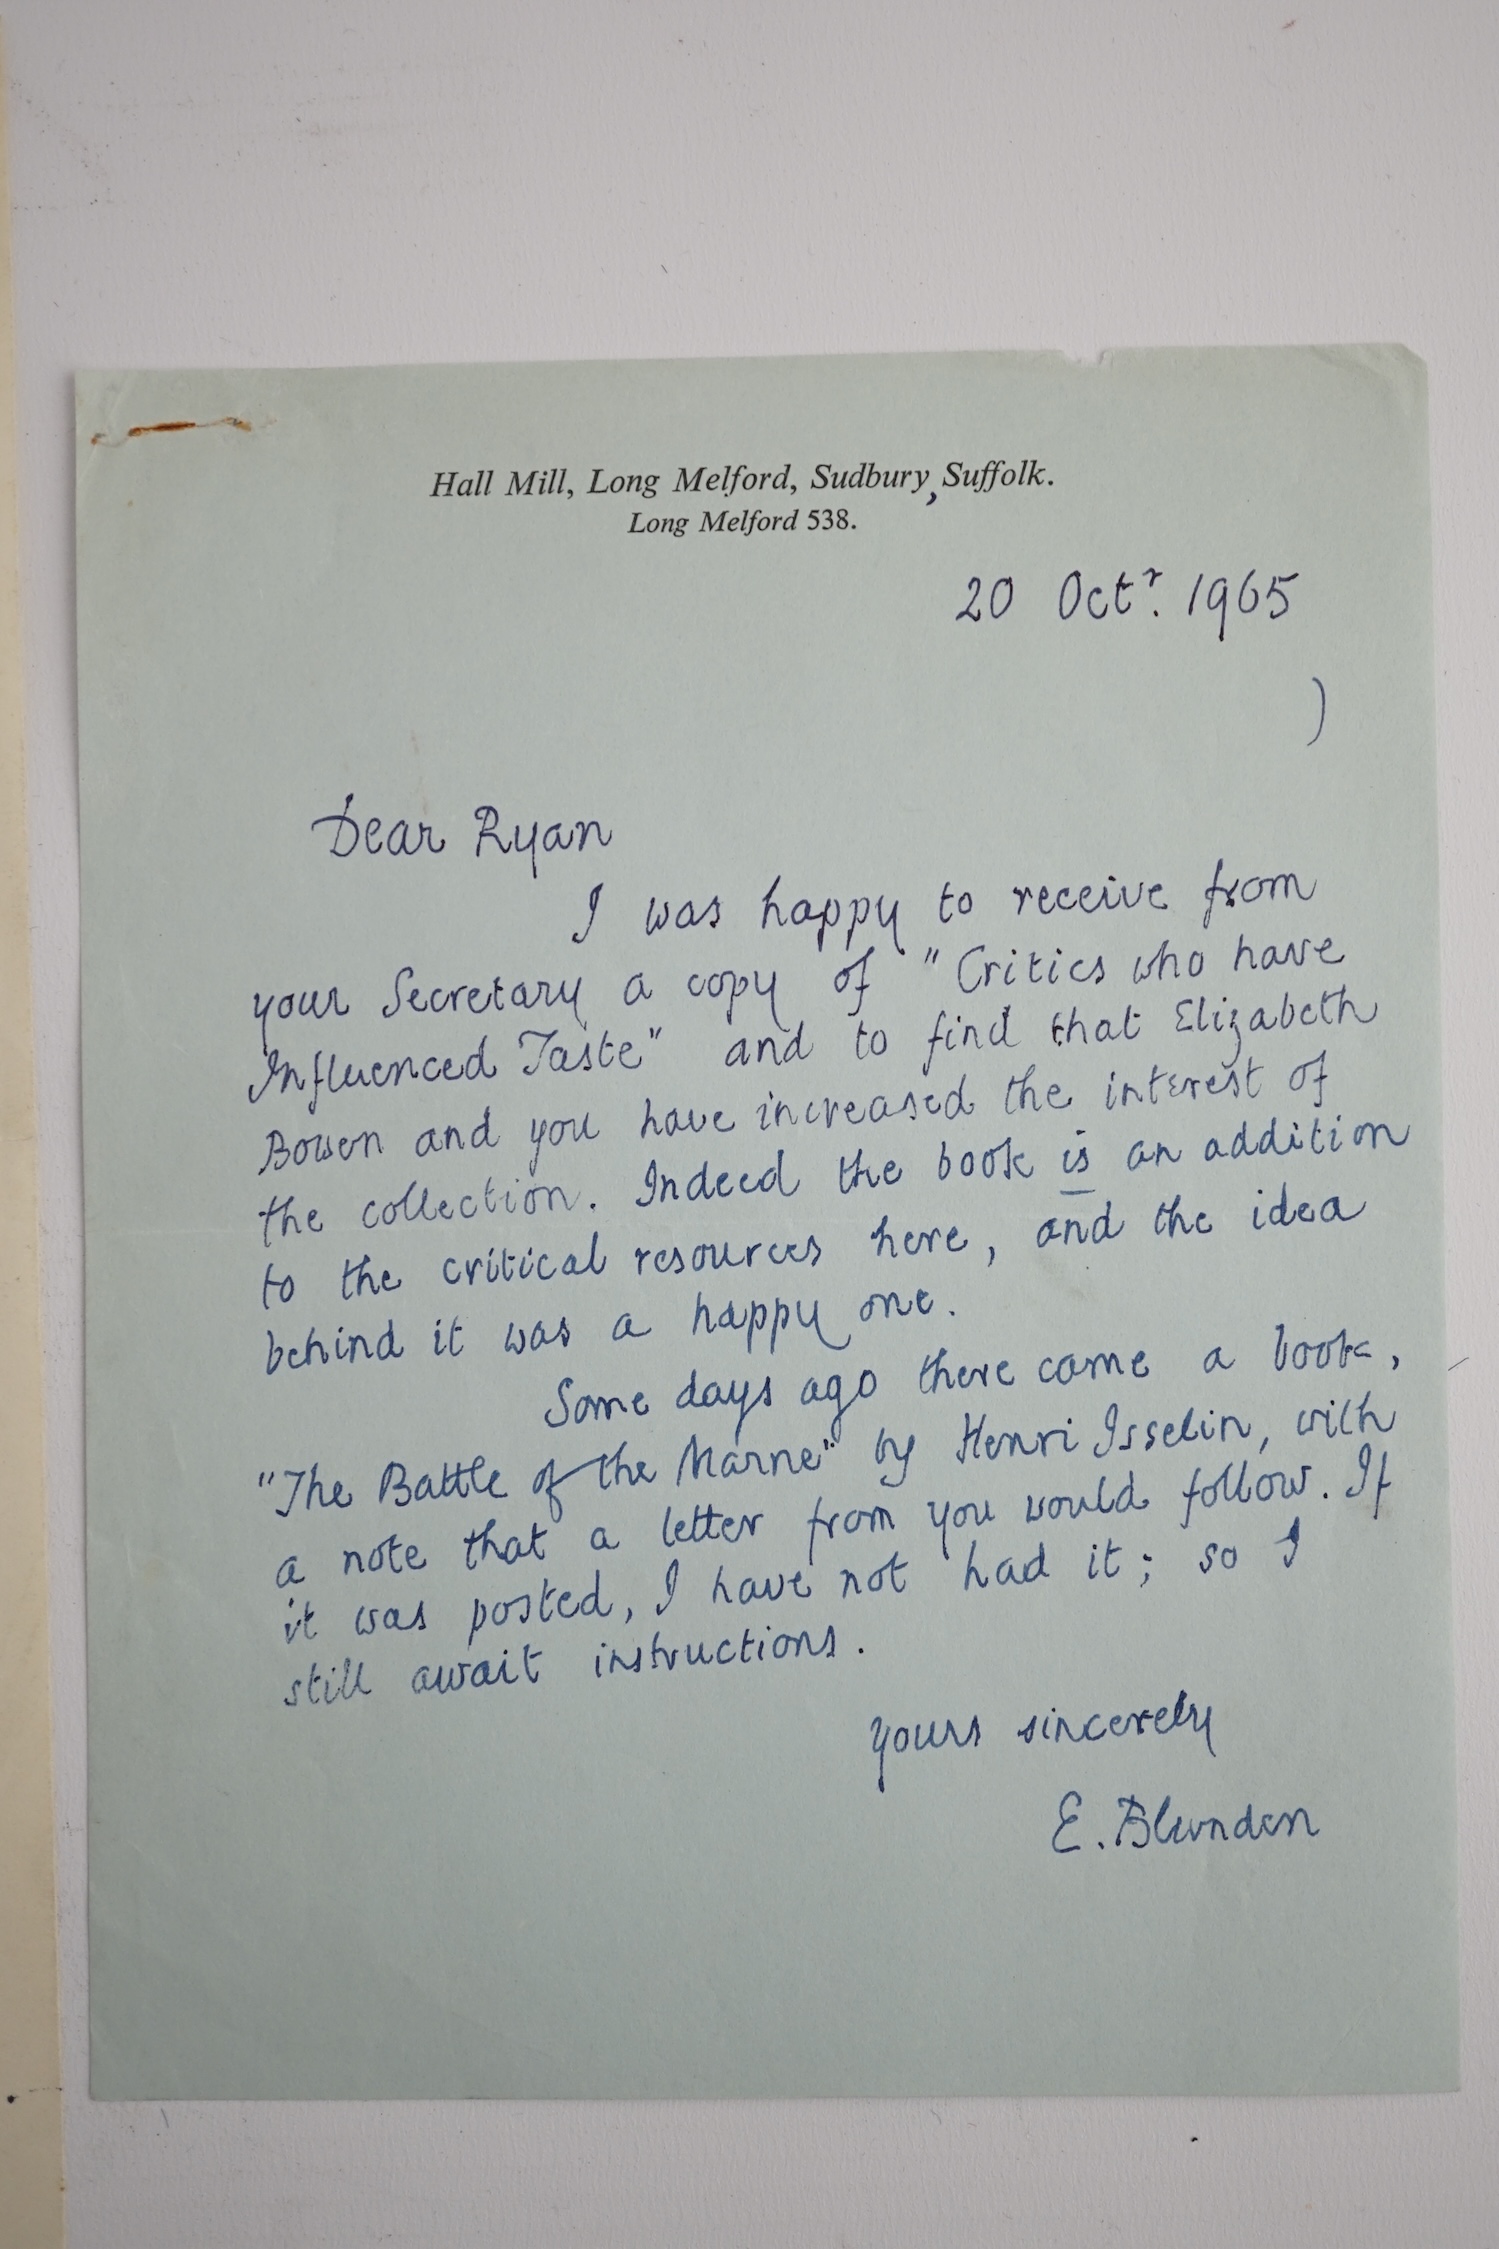 Hall Mill, Long Melford, Sudbury, Suffolk.
Long Melford 538.
20 Octr. 1965
)
Dear Ryan
I was happy to receive from
your Secretary a copy of "Critics who have
Influenced Taste" and to find that Elizabeth
Bowen and you have increased the interest of
the collection. Indeed the book is an addition
to the critical resources here, and the idea
behind it was a happy one.
Some days ago there came a book,
"The Battle of the Marne" by Henri Isselin, with
a note that a letter from you would follow. If
it was posted, I have not had it; so I
still await instructions.
Yours sincerely
E. Blunden